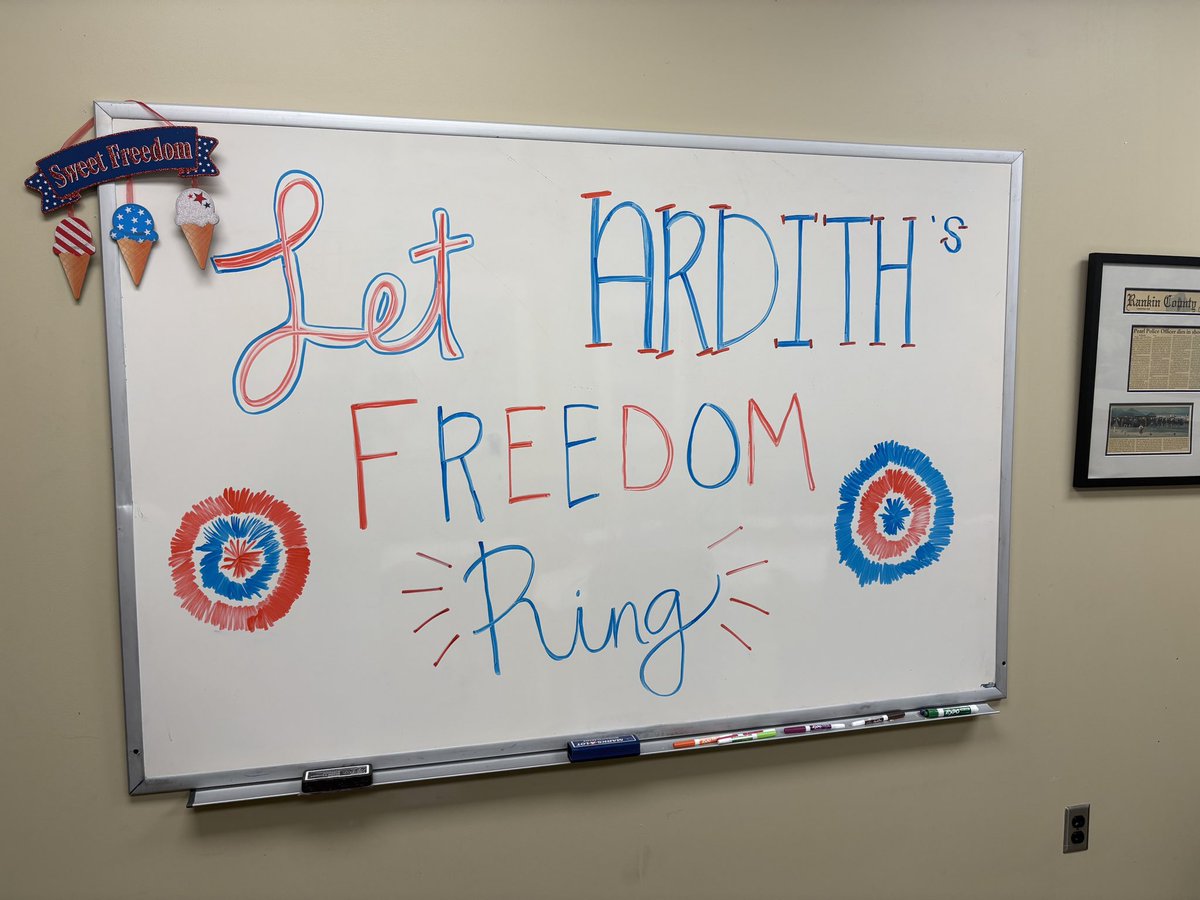 Sweet Freedom
Let ARDITH's
FREEDOM
Ring
Rankin County
Pearl Police Officer dies in
MARKS-A-LOT
EXPO